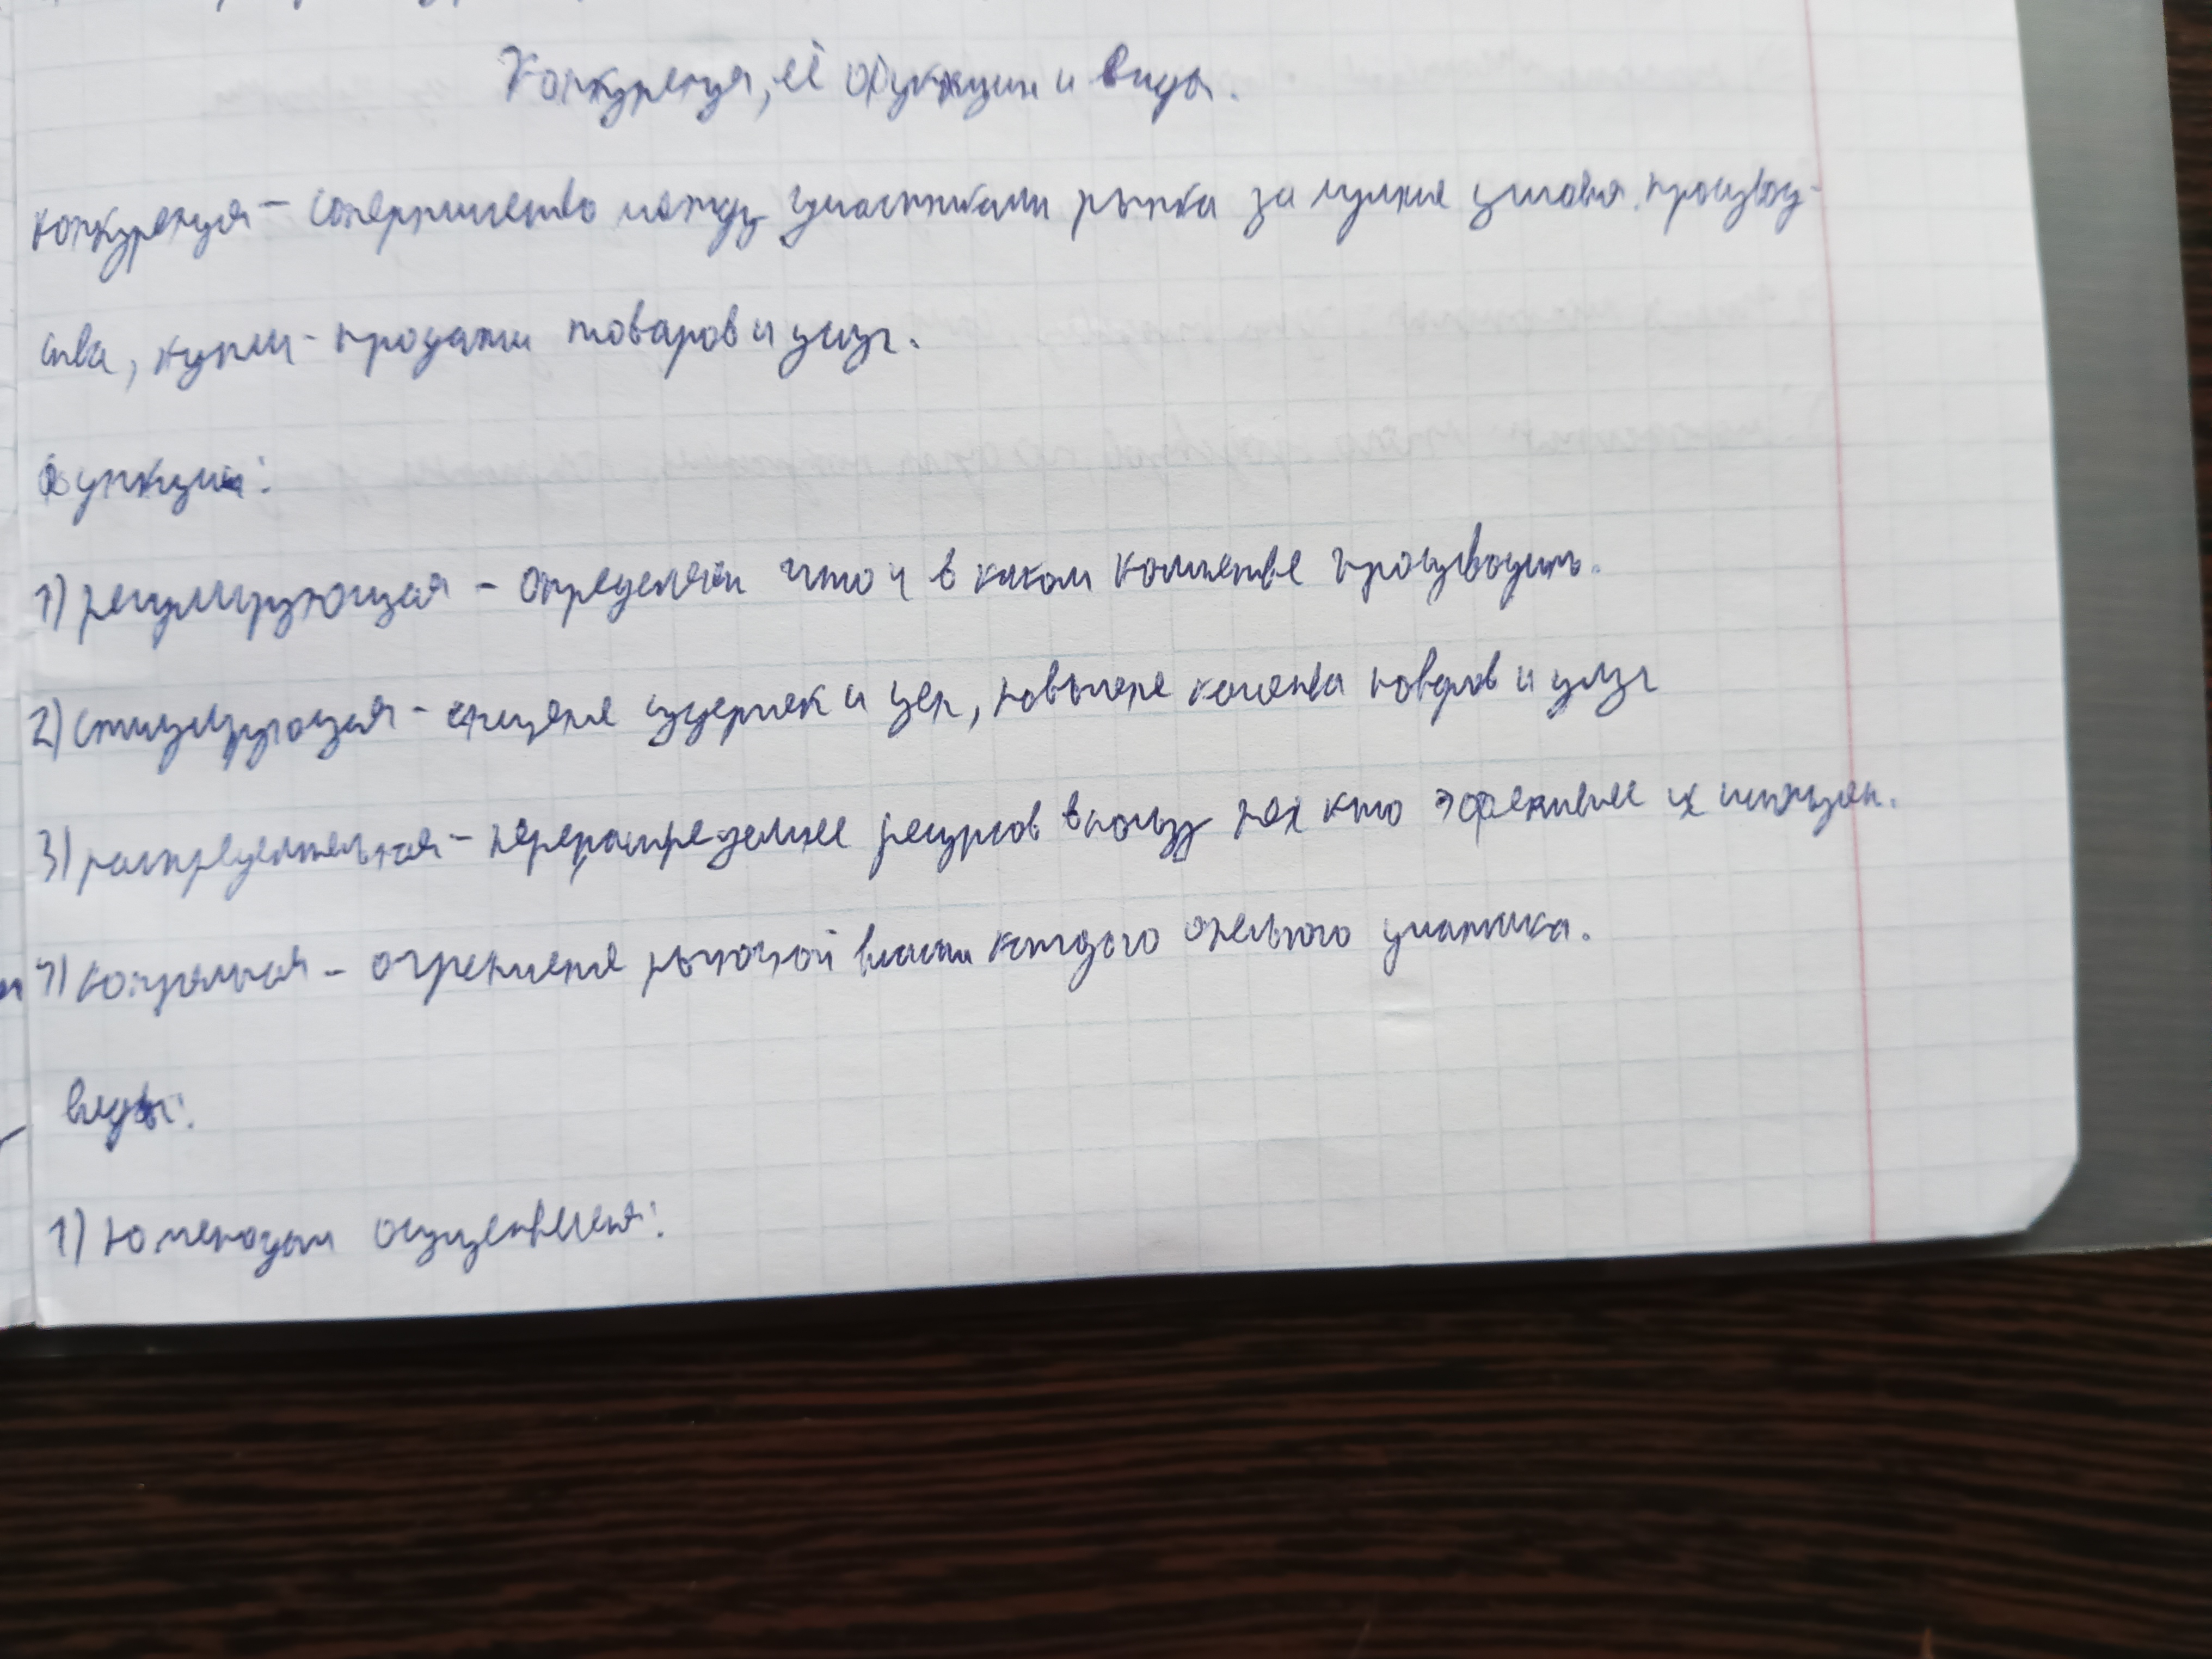 Конкуренция, её функции и виды.
Конкуренция - соперничество между участниками рынка за лучшие условия производ-
ства, купли-продажи товаров и услуг.
Функции:
1) регулирующая - определяет что и в каком количестве производить.
2) стимулирующая - снижение издержек и цен, повышение качества товаров и услуг
3) распределительная - перераспределение ресурсов в пользу тех кто эффективнее их использ.
4) контрольная - ограничение рыночной власти каждого отдельного участника.
Виды:
1) по методам осуществления: